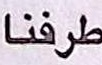 طرفنا